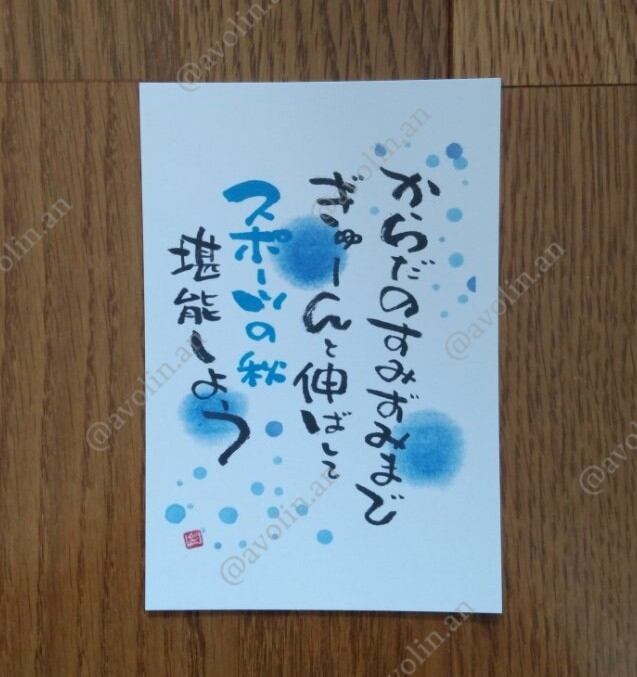 からだのすみずみまで
ぎゅーんと伸ばして
スポーツの秋
堪能しよう
@avolin.an
@avolin.an
@avolin.an
@avolin.an
@avolin.an
@avolin.an
@avolin.an
@avolin.an
@avolin.an